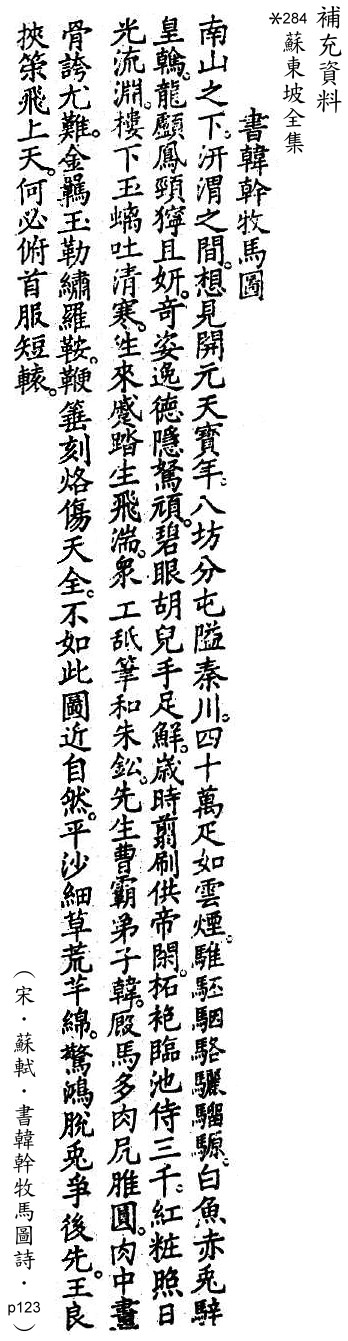 補充資料
*284 蘇東坡全集
書韓幹牧馬圖
南山之下。汧渭之間。想見開元天寶年。八坊分屯隘秦川。四十萬疋如雲煙。騅駓駰駱驪騮騵。白魚赤兔騂
皇鶾。龍顱鳳頸獰且妍。奇姿逸德隱駑頑。碧眼胡兒手足鮮。歲時翦刷供帝閑。柘袍臨池侍三千。紅粧照日
光流淵。樓下玉螭吐清寒。往來蹙踏生飛湍。衆工舐筆和朱鈆。先生曹霸弟子韓。廄馬多肉尻脽圓。肉中畫
骨誇尤難。金羈玉勒繡羅鞍。鞭箠刻烙傷天全。不如此圖近自然。平沙細草荒芊綿。驚鴻脫兔爭後先。王良
挾策飛上天。何必俯首服短轅。
（宋．蘇軾．書韓幹牧馬圖詩．p123）